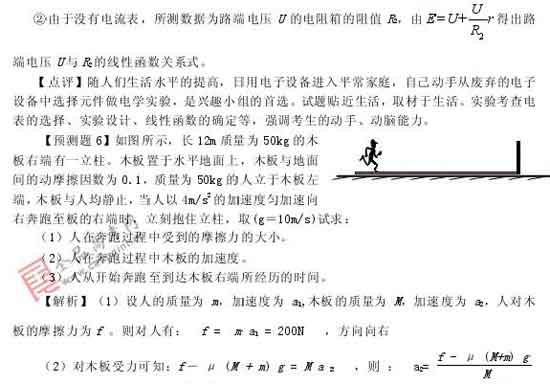 ②由于没有电流表，所测数据为路端电压 U 的电阻箱的阻值 R₂，由 E=U+\frac{U}{R_2}r 得出路
端电压 U 与 R₂的线性函数关系式。
【点评】随人们生活水平的提高，日用电子设备进入平常家庭，自己动手从废弃的电子
设备中选择元件做电学实验，是兴趣小组的首选。试题贴近生活，取材于生活。实验考查电
表的选择、实验设计、线性函数的确定等，强调考生的动手、动脑能力。
【预测题 6】如图所示，长 12m 质量为 50kg 的木
板右端有一立柱。木板置于水平地面上，木板与地面
间的动摩擦因数为 0.1，质量为 50kg 的人立于木板左
端，木板与人均静止，当人以 4m/s² 的加速度匀加速向
右奔跑至板的右端时，立刻抱住立柱，取(g=10m/s)试求：
（1）人在奔跑过程中受到的摩擦力的大小。
（2）人在奔跑过程中木板的加速度。
（3）人从开始奔跑至到达木板右端所经历的时间。
【解析】（1）设人的质量为 m，加速度为 a₁,木板的质量为 M，加速度为 a₂，人对木
板的摩擦力为 f 。则对人有： f = m a₁ = 200N ，方向向右
（2）对木板受力可知：f－ μ (M + m) g = M a ₂ ，则 ： a₂= \frac{f - μ (M+m) g}{M}